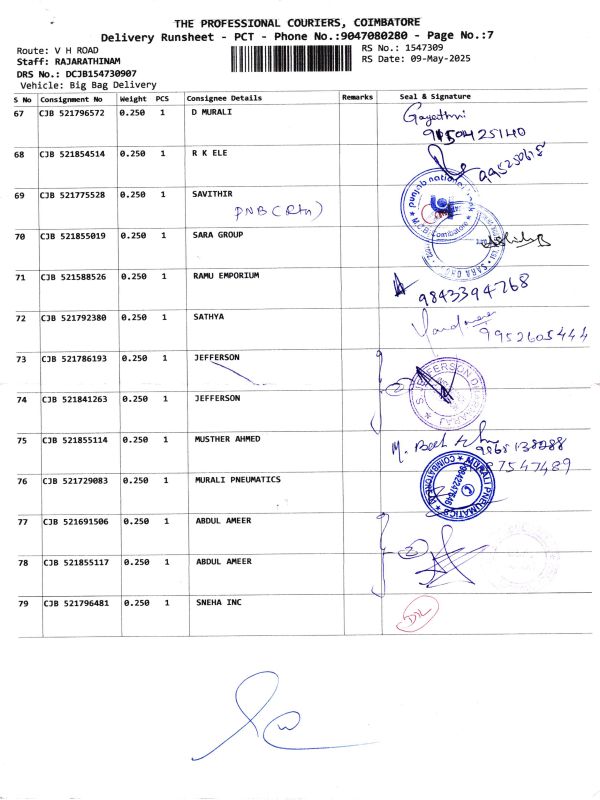 THE PROFESSIONAL COURIERS, COIMBATORE
Delivery Runsheet - PCT - Phone No.:9047080280 - Page No.:7
Route: V H ROAD
RS No.: 1547309
Staff: RAJARATHINAM
RS Date: 09-May-2025
DRS No.: DCJB154730907
Vehicle: Big Bag Delivery
S No Consignment No Weight PCS Consignee Details Remarks Seal & Signature
67 CJB 521796572 0.250 1 D MURALI Gayathri
68 CJB 521854514 0.250 1 R K ELE
69 CJB 521775528 0.250 1 SAVITHIR
PNB (Rtn)
70 CJB 521855019 0.250 1 SARA GROUP
71 CJB 521588526 0.250 1 RAMU EMPORIUM
9843394768
72 CJB 521792380 0.250 1 SATHYA
9952605444
73 CJB 521786193 0.250 1 JEFFERSON
2
74 CJB 521841263 0.250 1 JEFFERSON
75 CJB 521855114 0.250 1 MUSTHER AHMED
76 CJB 521729083 0.250 1 MURALI PNEUMATICS
MURALI PNEUMATICS
COIMBATORE
77 CJB 521691506 0.250 1 ABDUL AMEER
2
78 CJB 521855117 0.250 1 ABDUL AMEER
79 CJB 521796481 0.250 1 SNEHA INC